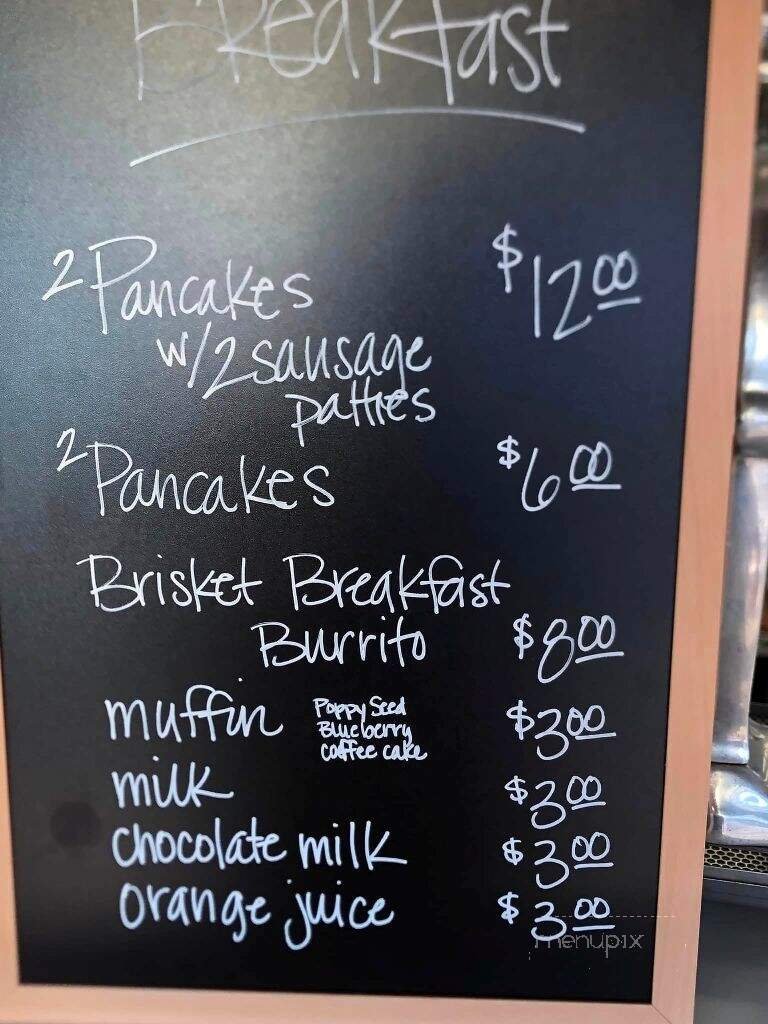 Breakfast
2 Pancakes $12.00
w/2 sausage
patties
2 Pancakes $6.00
Brisket Breakfast
Burrito $8.00
muffin Poppy Seed $3.00
Blueberry
coffee cake
milk $3.00
chocolate milk $3.00
orange juice $3.00
menupix